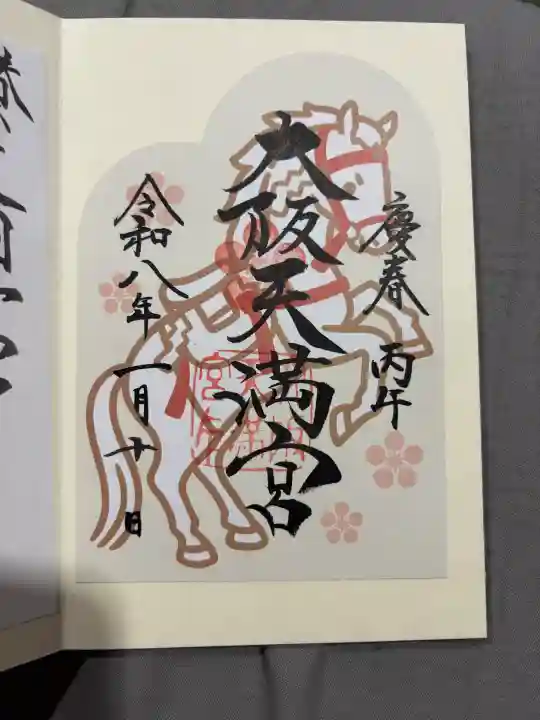 慶春 丙午
大阪天満宮
令和八年 一月十日